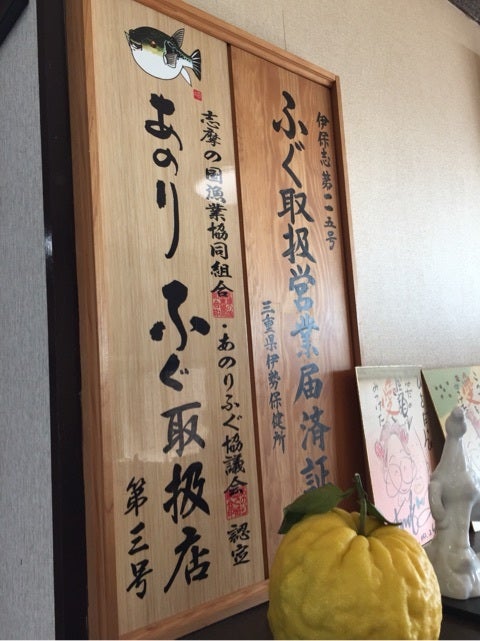 伊保志第一二五号
ふぐ取扱営業届済証
三重県伊勢保健所
志摩の国漁業協同組合・あのりふぐ協議会認定
あのりふぐ取扱店
第三号